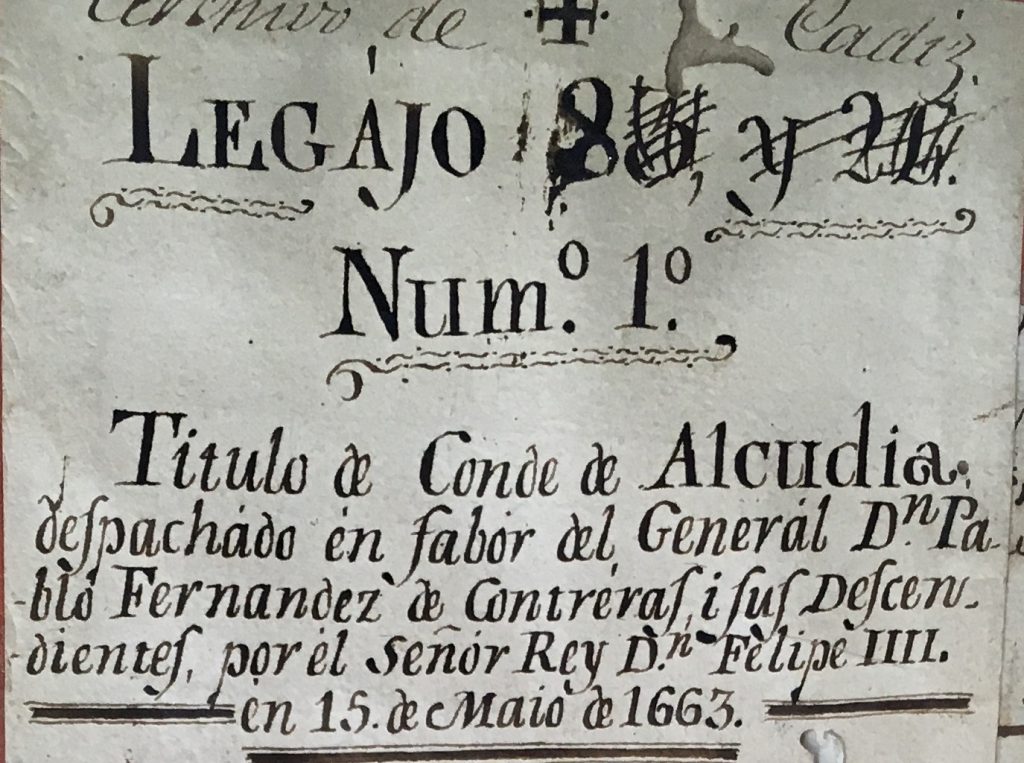 Archivo de Cadiz.
LEGÁJO 8
Num.º 1.º
Titulo de Conde de Alcudia.
despachádo én fabór del Generál D.n Pa-
bló Fernandez de Contréras, i sus Descen-
dientes, por él Señór Rey D.n Felipe IIII.
én 15. de Maio de 1663.